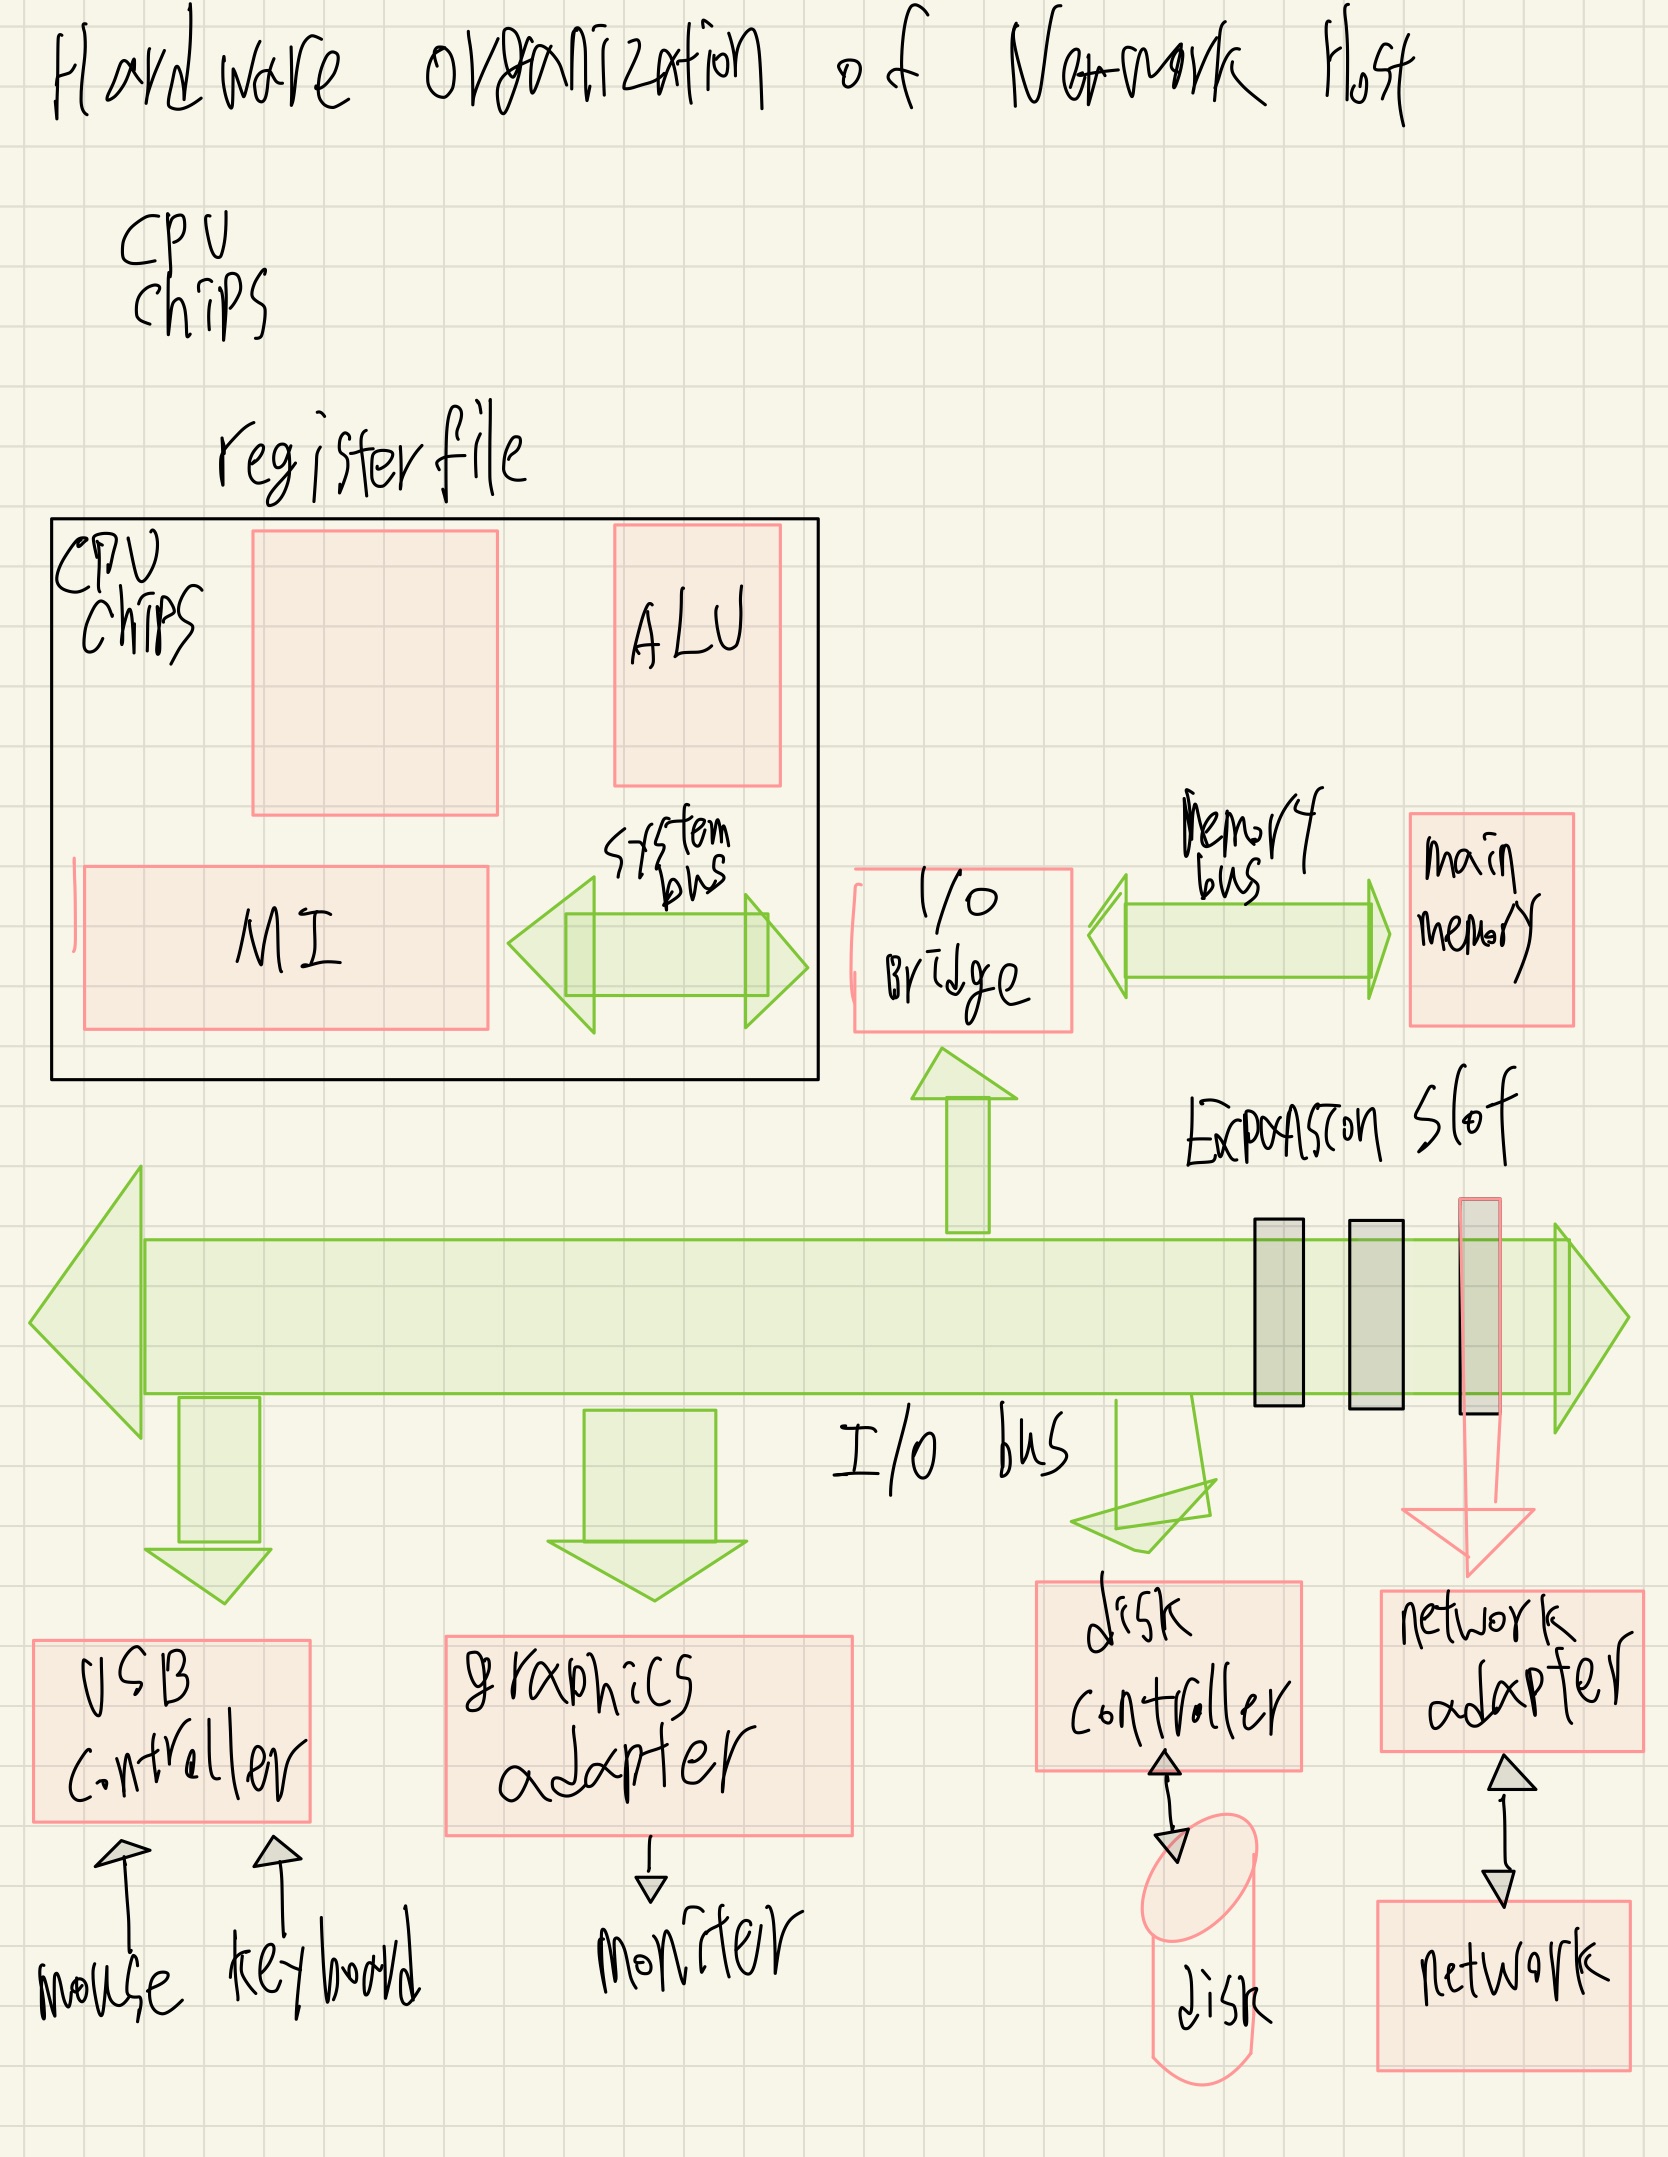 Hardware organization of Network Host
CPU
chips
register file
CPU
chips
ALU
system
bus
MI
I/O
Bridge
Memory
bus
main
memory
Expansion slot
I/O bus
USB
controller
graphics
adapter
disk
controller
network
adapter
mouse
keyboard
moniter
disk
network